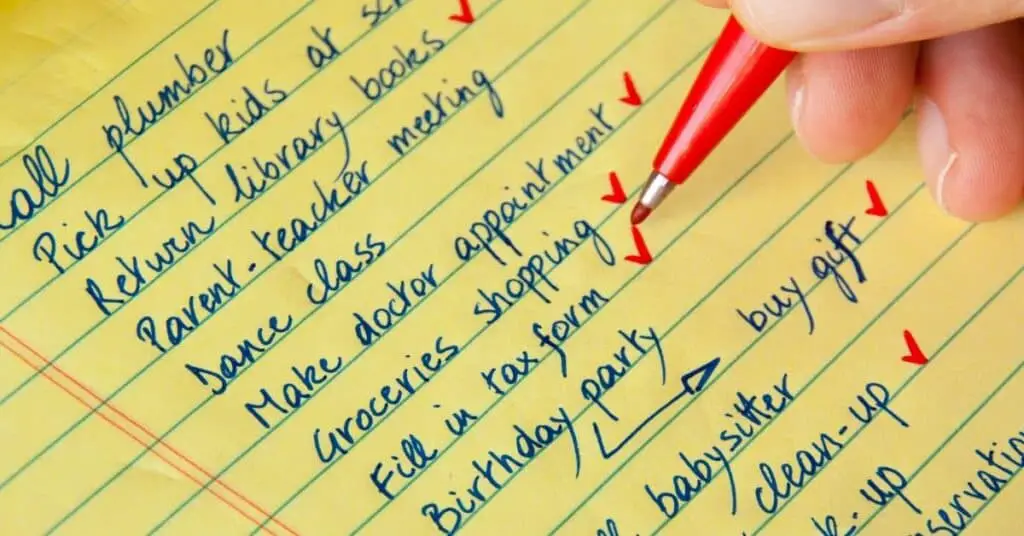 plumber
Pick up kids at
Return library books
Parent-teacher meeting
Dance class
Make doctor appointment
Groceries shopping
Fill in tax form
Birthday party buy gift
babysitter
clean-up